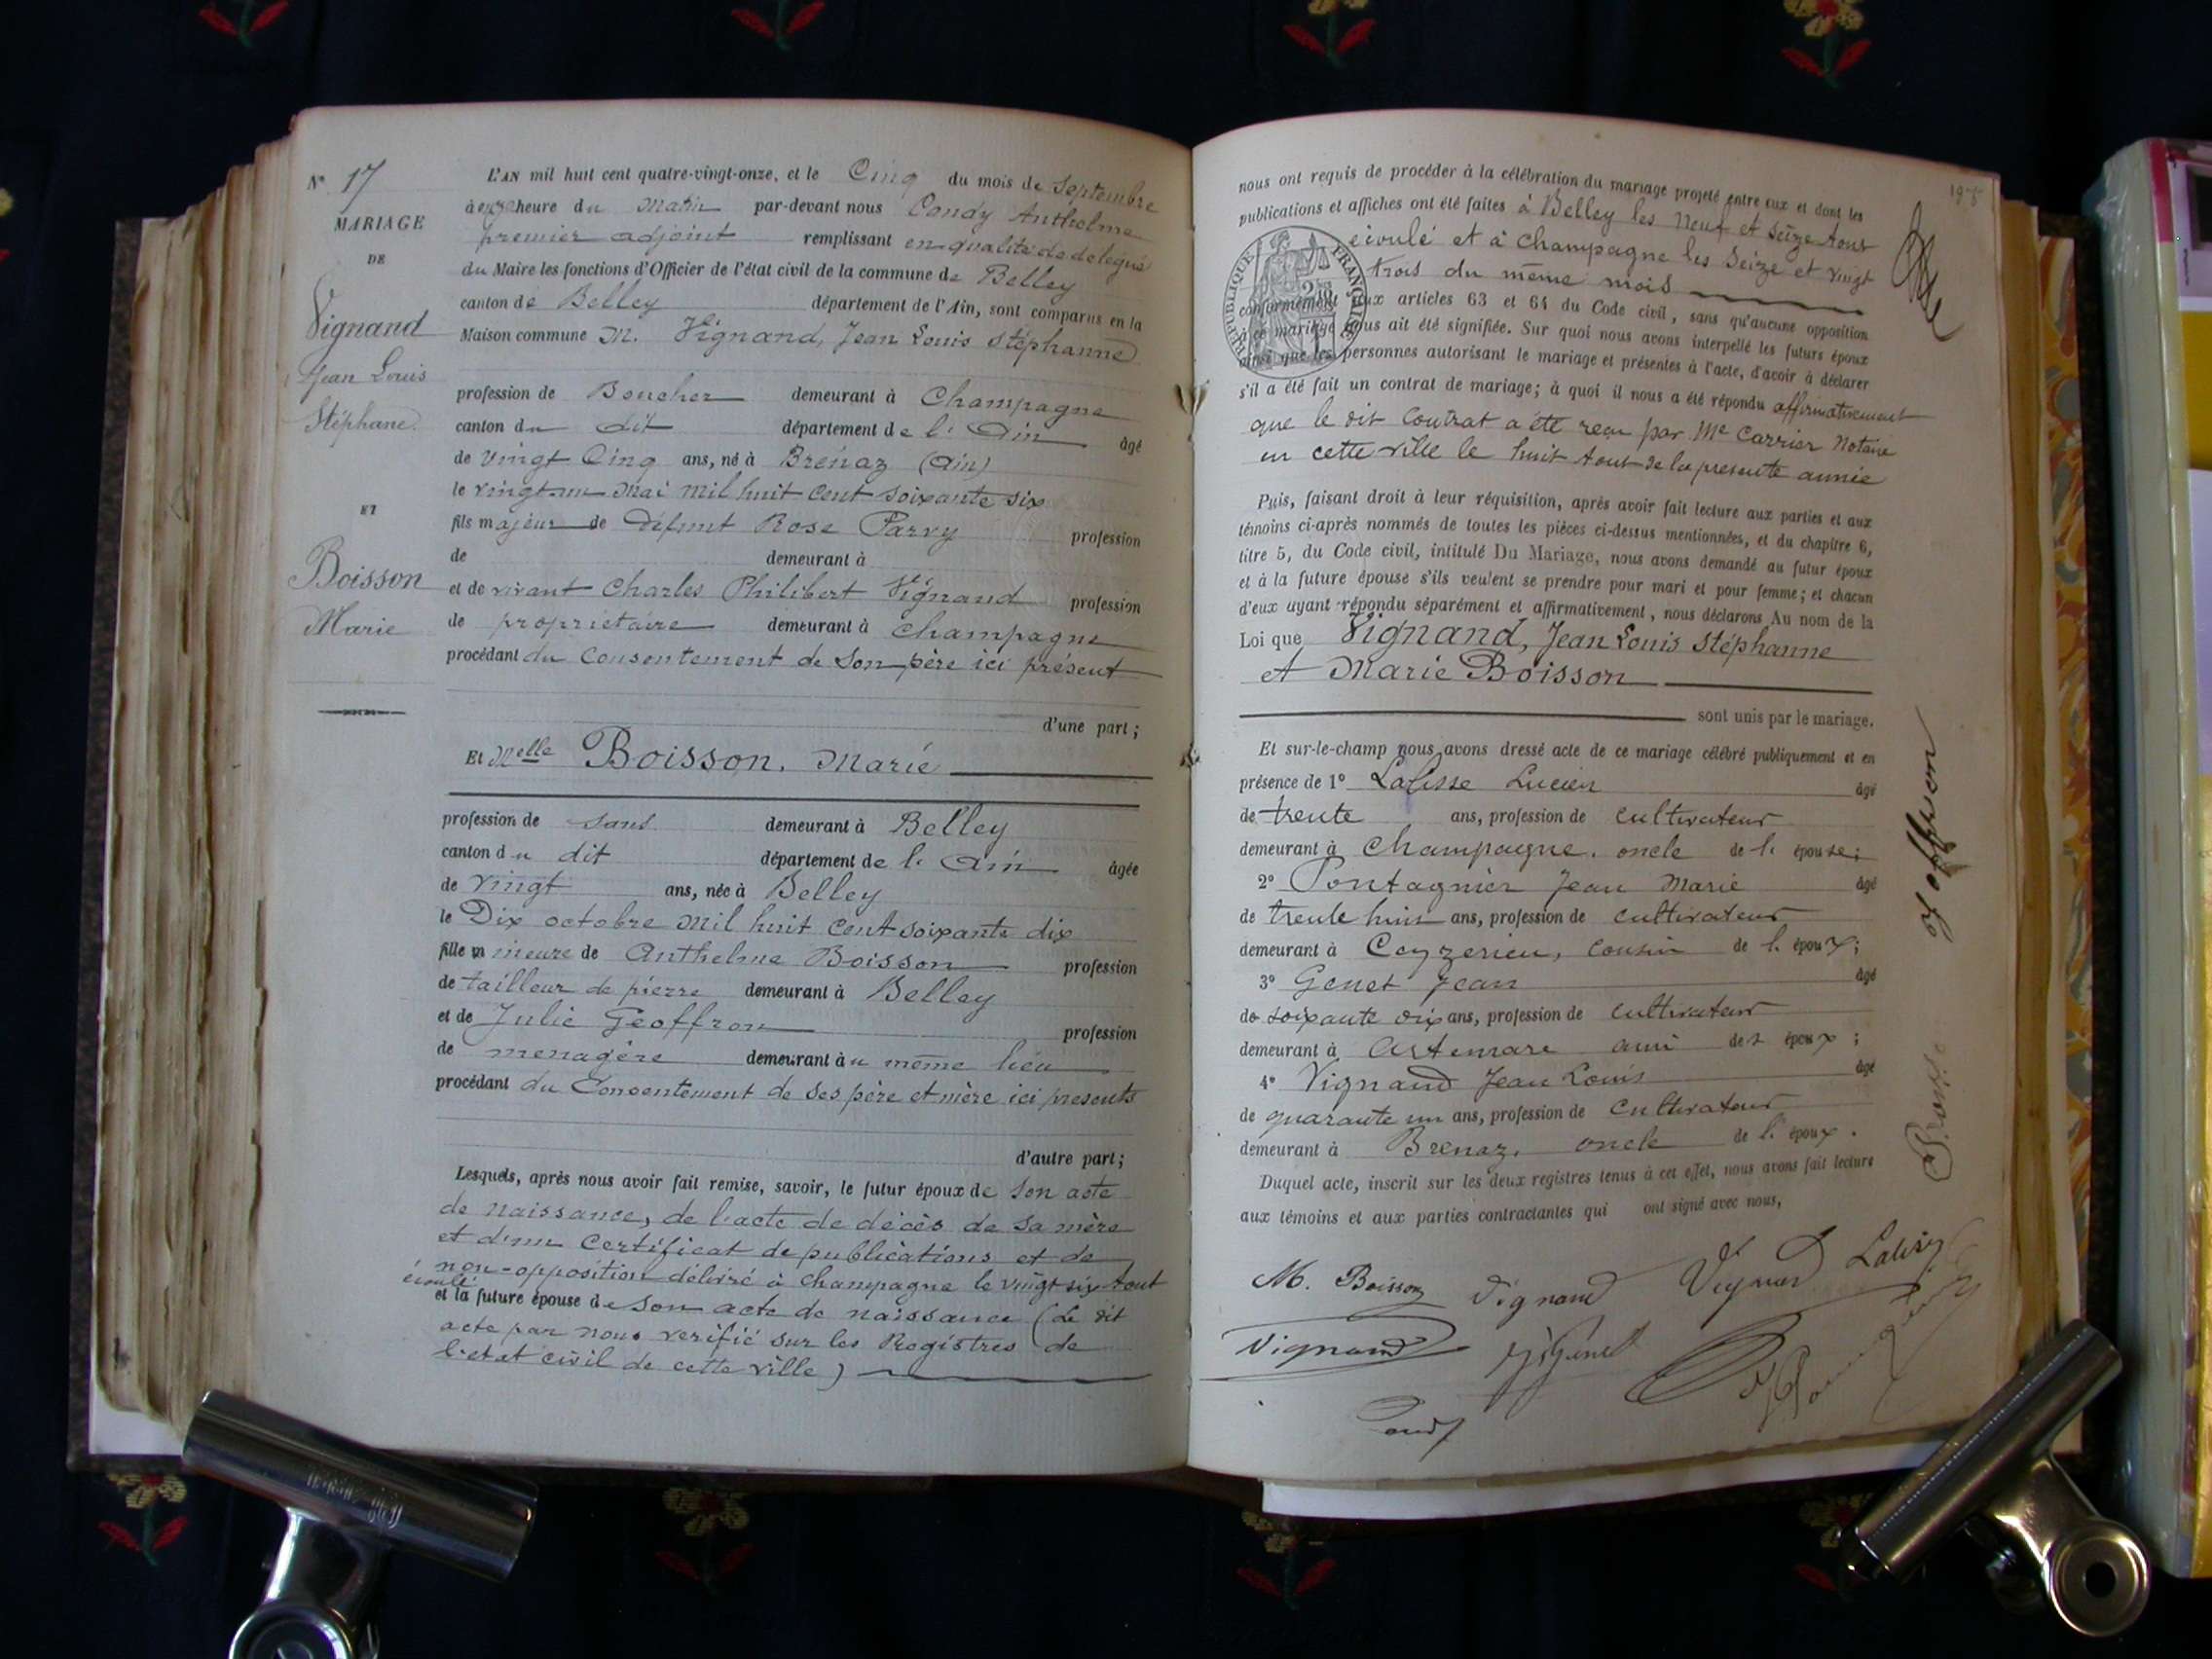 N° 17
MARIAGE
DE
Vignand
Jean Louis
Stéphane
ET
Boisson
Marie
L'AN mil huit cent quatre-vingt-onze, et le Cinq du mois de Septembre
à onze heure du Matin par-devant nous Condy Anthelme
premier adjoint remplissant en qualité de délégué
du Maire les fonctions d'Officier de l'état civil de la commune de Belley
canton de Belley département de l'Ain, sont comparus en la
Maison commune M. Vignand, Jean Louis Stéphanne
profession de Boucher demeurant à Champagne
canton du dit département de l'Ain âgé
de Vingt Cinq ans, né à Brénaz (Ain)
le vingt un Mai mil huit cent soixante six
fils majeur de Défunt Rose Parvy profession
de demeurant à
et de vivant Charles Philibert Vignand profession
de propriétaire demeurant à Champagne
procédant du Consentement de Son père ici présent
d'une part ;
Et Melle Boisson, Marie
profession de sans demeurant à Belley
canton du dit département de l'Ain âgée
de vingt ans, née à Belley
le Dix octobre mil huit cent soixante dix
fille mineure de Anthelme Boisson profession
de tailleur de pierre demeurant à Belley
et de Julie Geoffron profession
de menagère demeurant au même lieu
procédant du Consentement de ses père et mère ici presents
d'autre part ;
Lesquels, après nous avoir fait remise, savoir, le futur époux de Son acte
de naissance, de l'acte de décès de sa mère
et d'un Certificat de publications et de
non-opposition délivré à Champagne le vingt six Aout
écoulé
et la future épouse de son acte de naissance (Le dit
acte par nous verifié sur les Registres de
l'etat civil de cette ville)
nous ont requis de procéder à la célébration du mariage projeté entre eux et dont les
publications et affiches ont été faites à Belley les Neuf et Seize Aout
écoulé et à Champagne les Seize et vingt
trois du même mois
RÉPUBLIQUE FRANÇAISE
conformément aux articles 63 et 64 du Code civil, sans qu'aucune opposition
à ce mariage nous ait été signifiée. Sur quoi nous avons interpellé les futurs époux
ainsi que les personnes autorisant le mariage et présentes à l'acte, d'avoir à déclarer
s'il a été fait un contrat de mariage ; à quoi il nous a été répondu affirmativement
que le dit Contrat a été reçu par Me Carrier Notaire
en cette ville le huit Aout de la presente année
Puis, faisant droit à leur réquisition, après avoir fait lecture aux parties et aux
témoins ci-après nommés de toutes les pièces ci-dessus mentionnées, et du chapitre 6,
titre 5, du Code civil, intitulé Du Mariage, nous avons demandé au futur époux
et à la future épouse s'ils veulent se prendre pour mari et pour femme ; et chacun
d'eux ayant répondu séparément et affirmativement, nous déclarons Au nom de la
Loi que Vignand, Jean Louis Stéphanne
et Marie Boisson
sont unis par le mariage.
Et sur-le-champ nous avons dressé acte de ce mariage célébré publiquement et en
présence de 1° Lalisse Lucien âgé
de trente ans, profession de cultivateur
demeurant à Champagne, oncle de l'épouse ;
2° Pontagnier Jean Marie âgé
de trente huit ans, profession de cultivateur
demeurant à Ceyzerieu, cousin de l'époux ;
3° Genet Jean âgé
de soixante dix ans, profession de cultivateur
demeurant à Artemare ami des époux ;
4° Vignand Jean Louis âgé
de quarante un ans, profession de cultivateur
demeurant à Brenaz, oncle de l'époux.
Duquel acte, inscrit sur les deux registres tenus à cet effet, nous avons fait lecture
aux témoins et aux parties contractantes qui ont signé avec nous,
M. Boisson Vignand Vignand Lalisse
Vignand Genet
Condy